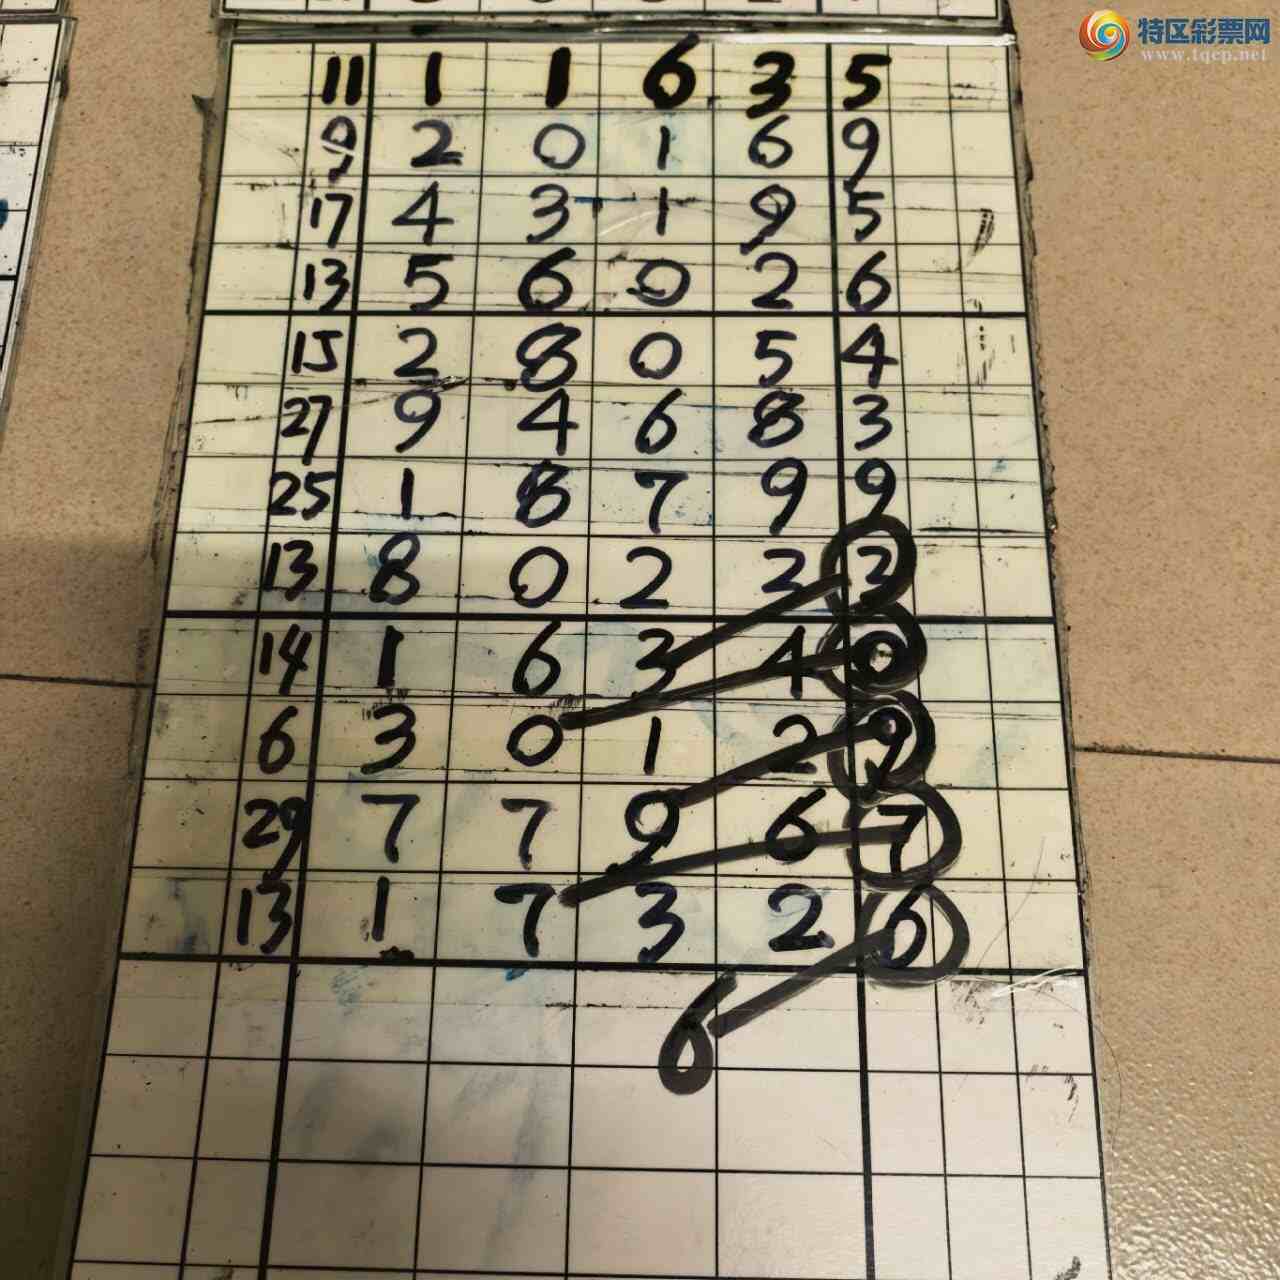 特区彩票网
www.tqcp.net
11 1 1 6 3 5
9 2 0 1 6 9
17 4 3 1 9 5
13 5 6 0 2 6
15 2 8 0 5 4
27 9 4 6 8 3
25 1 8 7 9 9
13 8 0 2 2 2
14 1 6 3 4 0
6 3 0 1 2 9
29 7 7 9 6 7
13 1 7 3 2 6
6